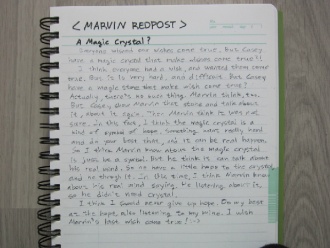 < MARVIN REDPOST >
A Magic Crystal?
Everyone wishes come true. But Casey
have a magic crystal that make wishes come true!!
I think everyone had a wish, and wanted them come
true. But is is very hard, and difficult. But Casey
have a magic stone that make wish come true?
Actually, there's no such thing. Marvin think, too.
But Casey show Marvin that stone and talk about
it, about it again. Then Marvin think it was not
sure. in this fact, I think the magic crystal is a
kind of symbol of hope. something want really hard
and do your best more, and it can be real happen.
So I think Marvin know about the magic crystal
is just be a symbol. But he think it can talk about
his real mind. So he have a little hope to the crystal
and go through it. In the time, I think Marvin know
about his real mind saying. He listening about it,
so he didn't need crystal.
I think I could never give up hope. Do my best
at the hope, also listening to my mind. I wish
Marvin's last wish come true! :-)